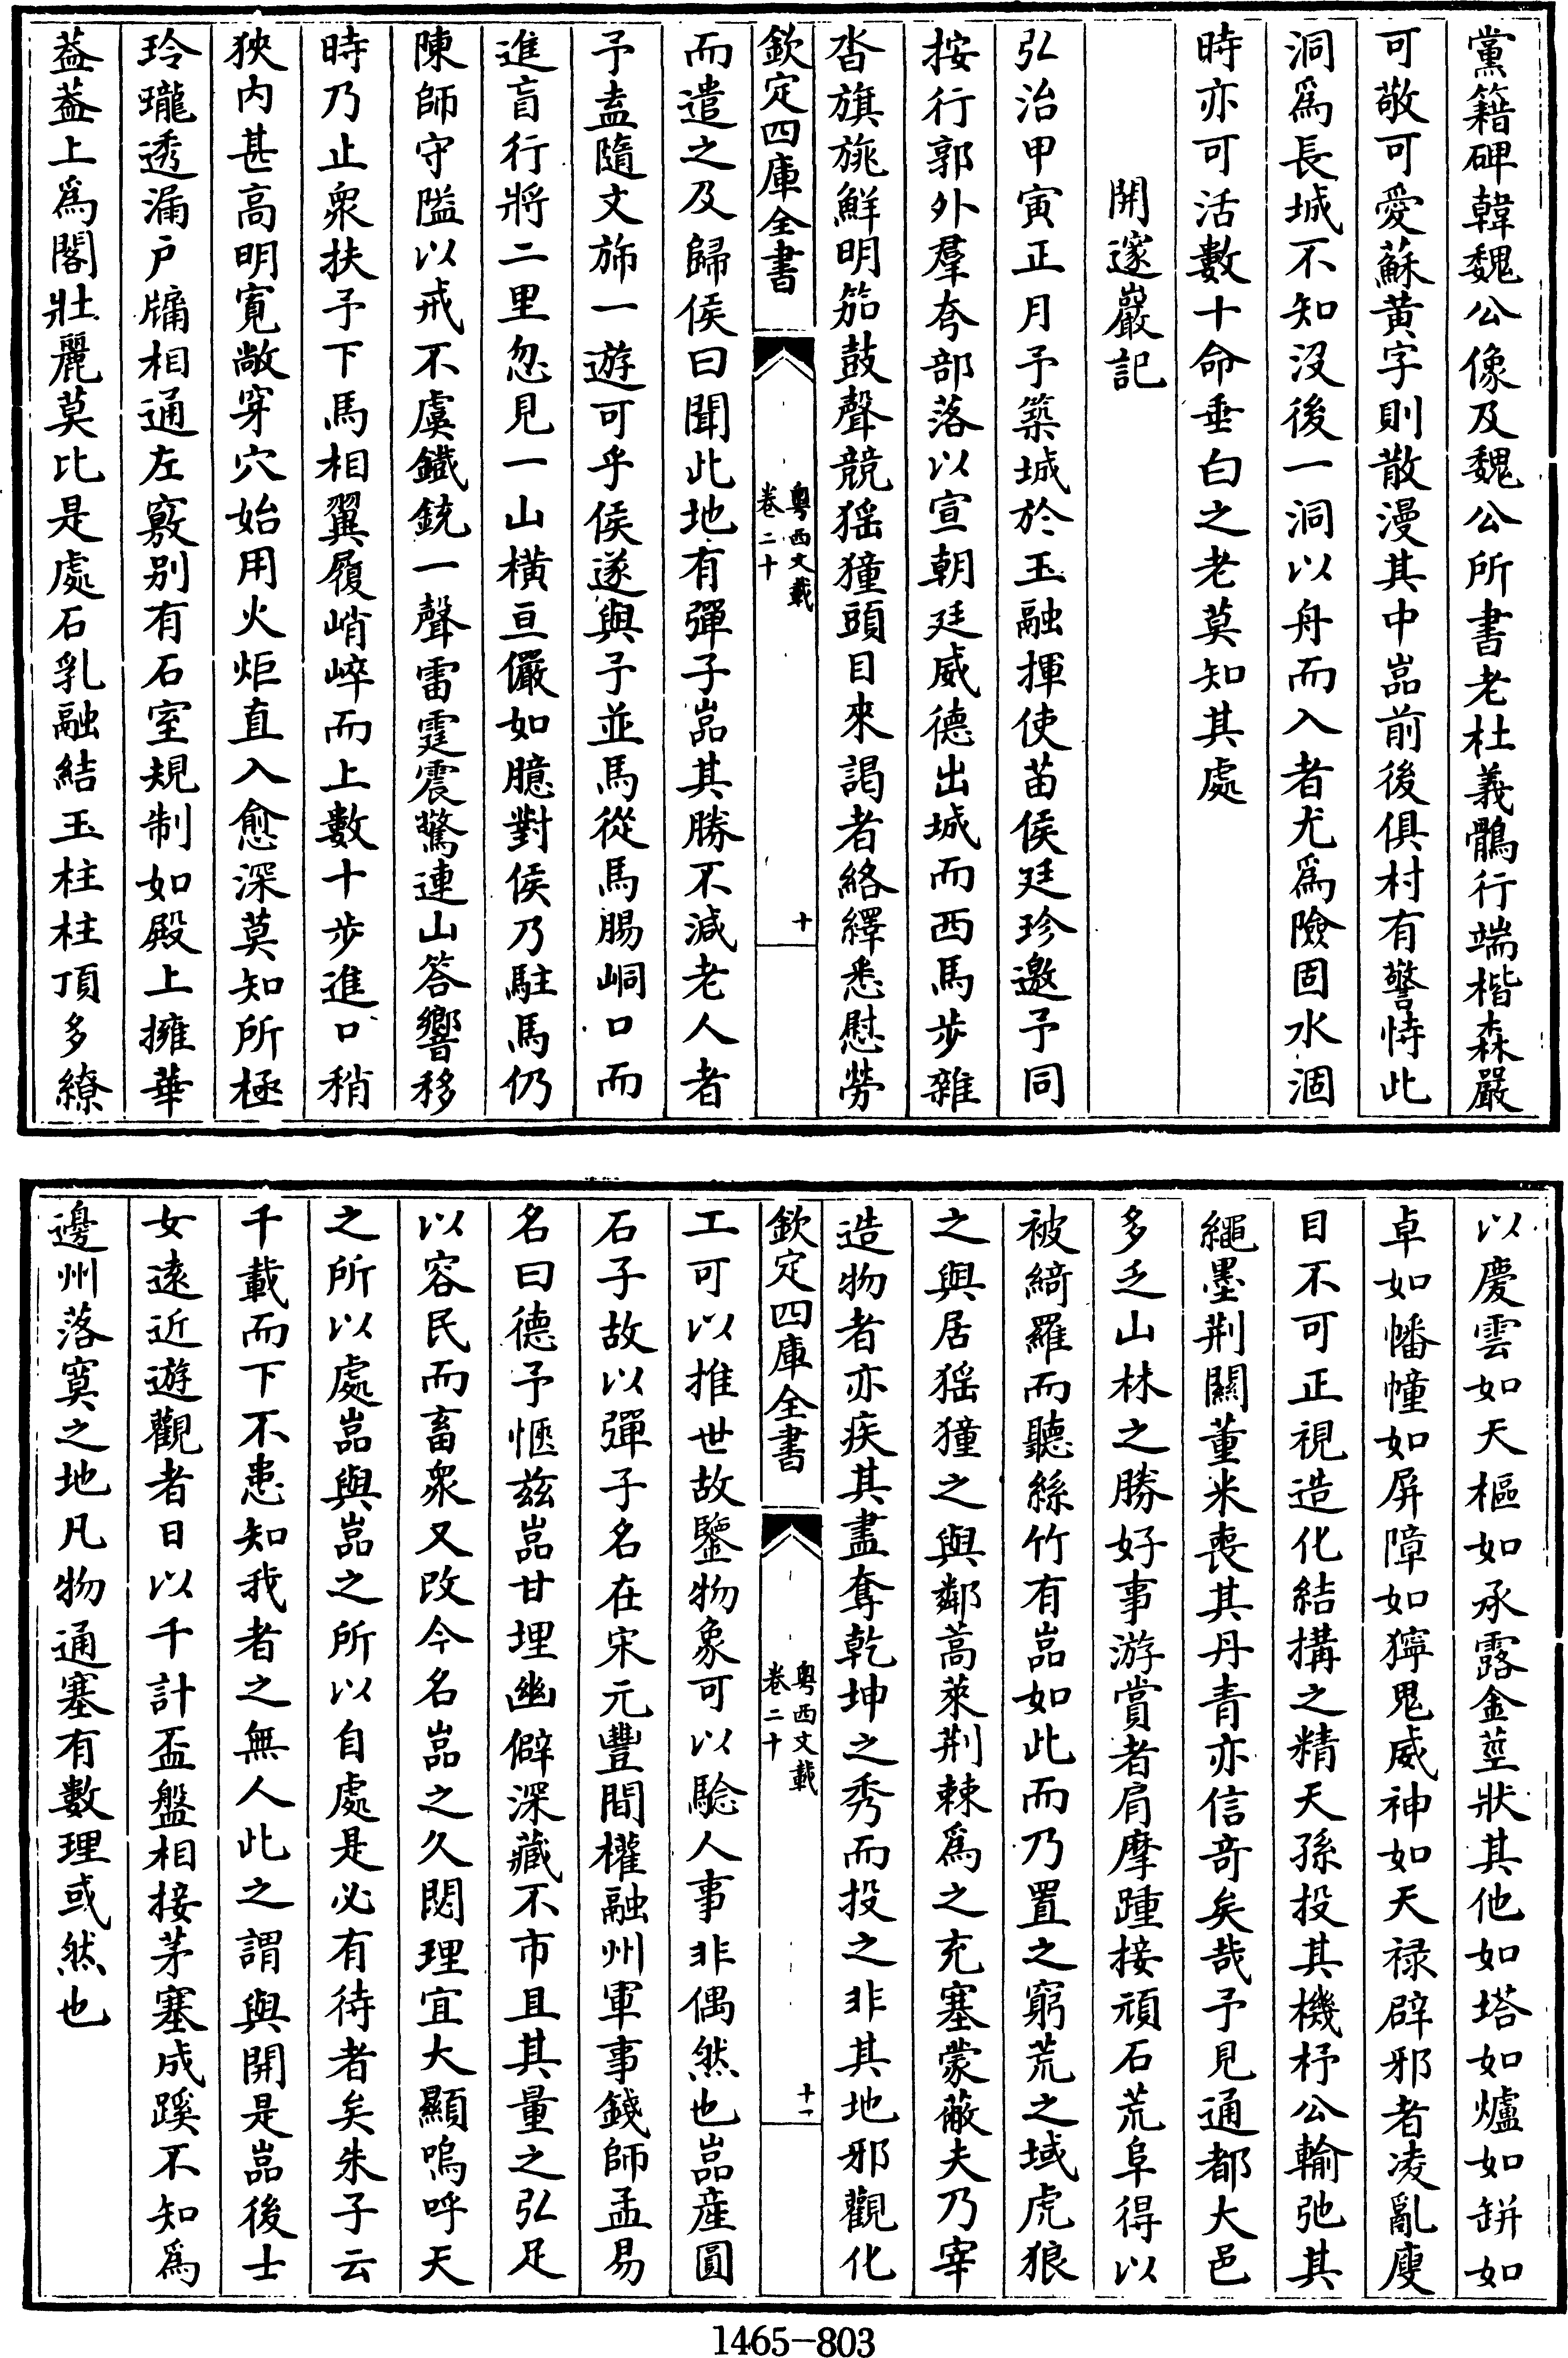 黨籍碑韓魏公像及魏公所書老杜義鶻行端楷森嚴
可敬可愛蘇黄字則散漫其中嵓前後俱村有警恃此
洞爲長城不知沒後一洞以舟而入者尤爲險固水涸
時亦可活數十命垂白之老莫知其處
開邃巖記
弘治甲寅正月予築城於玉融揮使苗侯廷珍邀予同
按行郭外羣夸部落以宣朝廷威德出城而西馬步雜
沓旗旐鮮明笳鼓聲競猺獞頭目來謁者絡繹悉慰勞
欽定四庫全書
粤西文載
卷二十
十
而遣之及歸侯曰聞此地有彈子嵓其勝不減老人者
予盍隨文斾一遊可乎侯遂與予並馬從馬腸峒口而
進盲行將二里忽見一山橫亘儼如臆對侯乃駐馬仍
陳師守隘以戒不虞鐵銃一聲雷霆震驚連山答響移
時乃止衆扶予下馬相翼履峭崪而上數十步進口稍
狹内甚高明寛敞穿穴始用火炬直入愈深莫知所極
玲瓏透漏户牖相通左竅别有石室規制如殿上擁華
葢葢上爲閣壯麗莫比是處石乳融結玉柱柱頂多繚
以慶雲如天樞如承露金莖狀其他如塔如爐如缾如
卓如幡幢如屏障如獰鬼威神如天禄辟邪者凌亂廋
目不可正視造化結搆之精天孫投其機杼公輸弛其
繩墨荆關董米喪其丹青亦信竒矣哉予見通都大邑
多乏山林之勝好事游賞者肩摩踵接頑石荒阜得以
被綺羅而聽絲竹有嵓如此而乃置之窮荒之域虎狼
之與居猺獞之與鄰蒿萊荆棘爲之充塞蒙蔽夫乃宰
造物者亦疾其盡奪乾坤之秀而投之非其地邪觀化
欽定四庫全書
粤西文載
卷二十
十一
工可以推世故鑒物象可以騐人事非偶然也嵓産圓
石子故以彈子名在宋元豐間權融州軍事錢師孟易
名曰德予愜兹嵓甘埋幽僻深藏不市且其量之弘足
以容民而畜衆又改今名嵓之久閟理宜大顯嗚呼天
之所以處嵓與嵓之所以自處是必有待者矣朱子云
千載而下不患知我者之無人此之謂與開是嵓後士
女遠近遊觀者日以千計盃盤相接茅塞成蹊不知爲
邊州落寞之地凡物通塞有數理或然也
1465-803